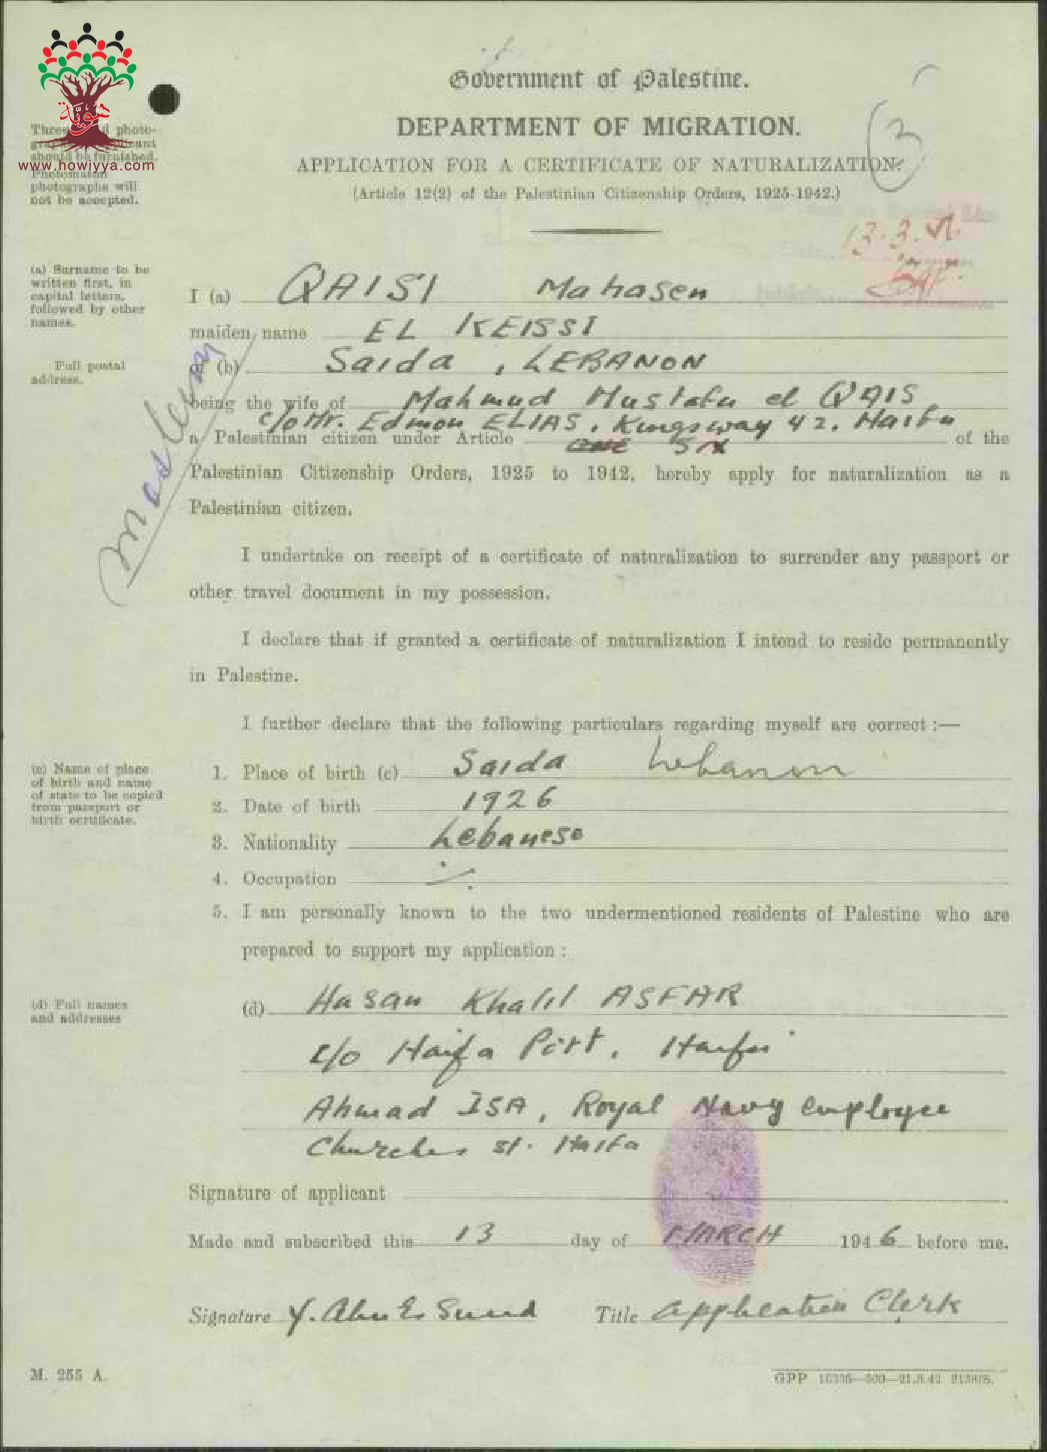 Government of Palestine.
DEPARTMENT OF MIGRATION.
APPLICATION FOR A CERTIFICATE OF NATURALIZATION.
(Article 12(2) of the Palestinian Citizenship Orders, 1925-1942.)
3
هوية
www.howiyya.com
Three photo-
should be furnished.
Photomaton
photographs will
not be accepted.
13.3.
(a) Surname to be
written first, in
capital letters,
followed by other
names.
I (a) QAISI Mahasen
maiden name EL KEISSI
Full postal
address.
of (b) Saida, LEBANON
being the wife of Mahmud Mustafa el QAIS
c/o Mr. Edmon ELIAS, Kingsway 42, Haifa
a Palestinian citizen under Article one six of the
Palestinian Citizenship Orders, 1925 to 1942, hereby apply for naturalization as a
Palestinian citizen.
I undertake on receipt of a certificate of naturalization to surrender any passport or
other travel document in my possession.
I declare that if granted a certificate of naturalization I intend to reside permanently
in Palestine.
I further declare that the following particulars regarding myself are correct :—
(c) Name of place
of birth and name
of state to be copied
from passport or
birth certificate.
1. Place of birth (c) Saida Lebanon
2. Date of birth 1926
3. Nationality Lebanese
4. Occupation ./.
5. I am personally known to the two undermentioned residents of Palestine who are
prepared to support my application :
(d) Full names
and addresses
(d) Hasan Khalil ASFAR
c/o Haifa Port, Haifa
Ahmad ISA, Royal Navy employee
Churches St. Haifa
Signature of applicant
Made and subscribed this 13 day of MARCH 1946 before me.
Signature Y. Title Application Clerk
M. 255 A.
GPP 500—21.8.42